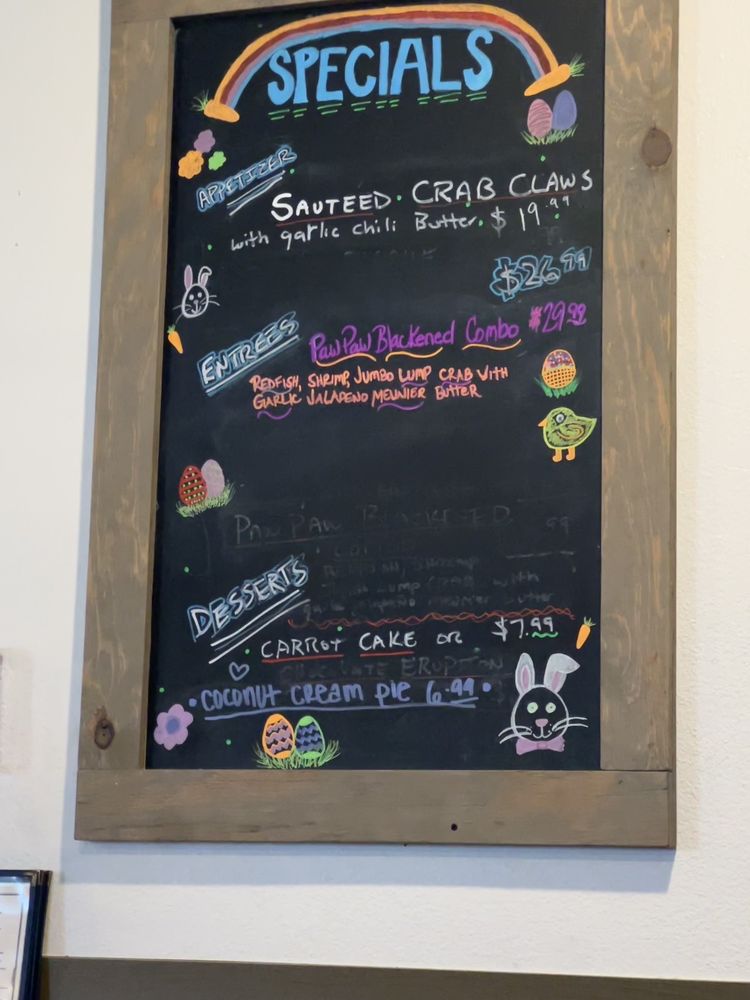 SPECIALS
APPETIZER
SAUTEED CRAB CLAWS
with garlic chili Butter. $ 19.99
$26.99
ENTREES
PawPaw Blackened Combo $29.99
REDFISH, SHRIMP, JUMBO LUMP CRAB WITH
GARLIC JALAPENO MEUNIER BUTTER
PAW PAW BLACKENED 99
DESSERTS
CARROT CAKE OR $7.99
CHOCOLATE ERUPTION
COCONUT CREAM PIE 6.99